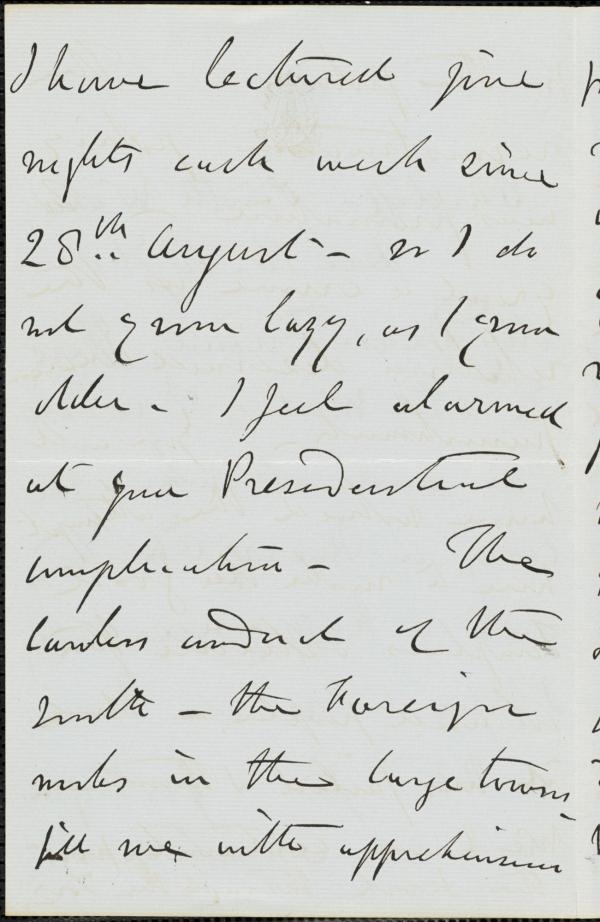 I have lectured five
nights each week since
28th August - so I do
not grow lazy, as I grow
older - I feel alarmed
at your Presidential
complication - The
lawless conduct of the
South - the Foreign
mobs in the large towns
fill me with apprehension